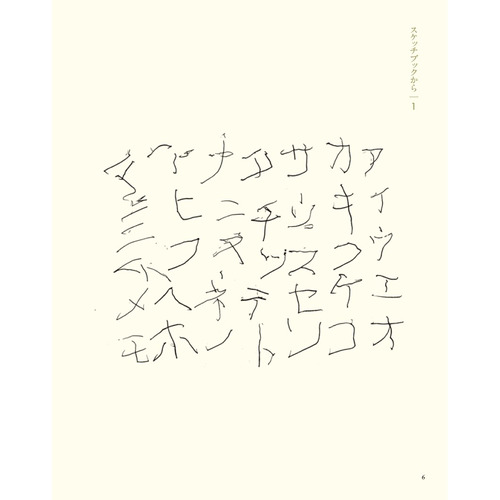 スケッチブックから—1
アイウエオ
カキクケコ
サシスセソ
タチツテト
ナニヌネノ
ハヒフヘホ
マミムメモ
6